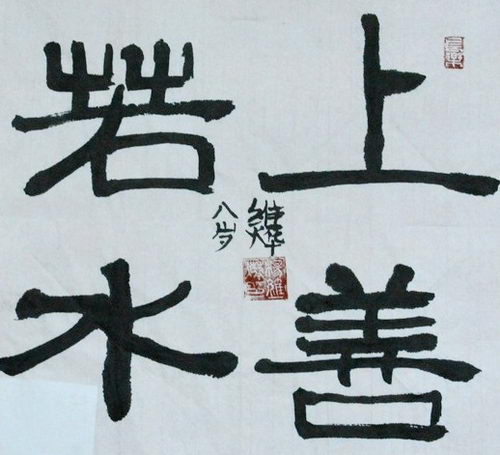 上善
若水
八岁